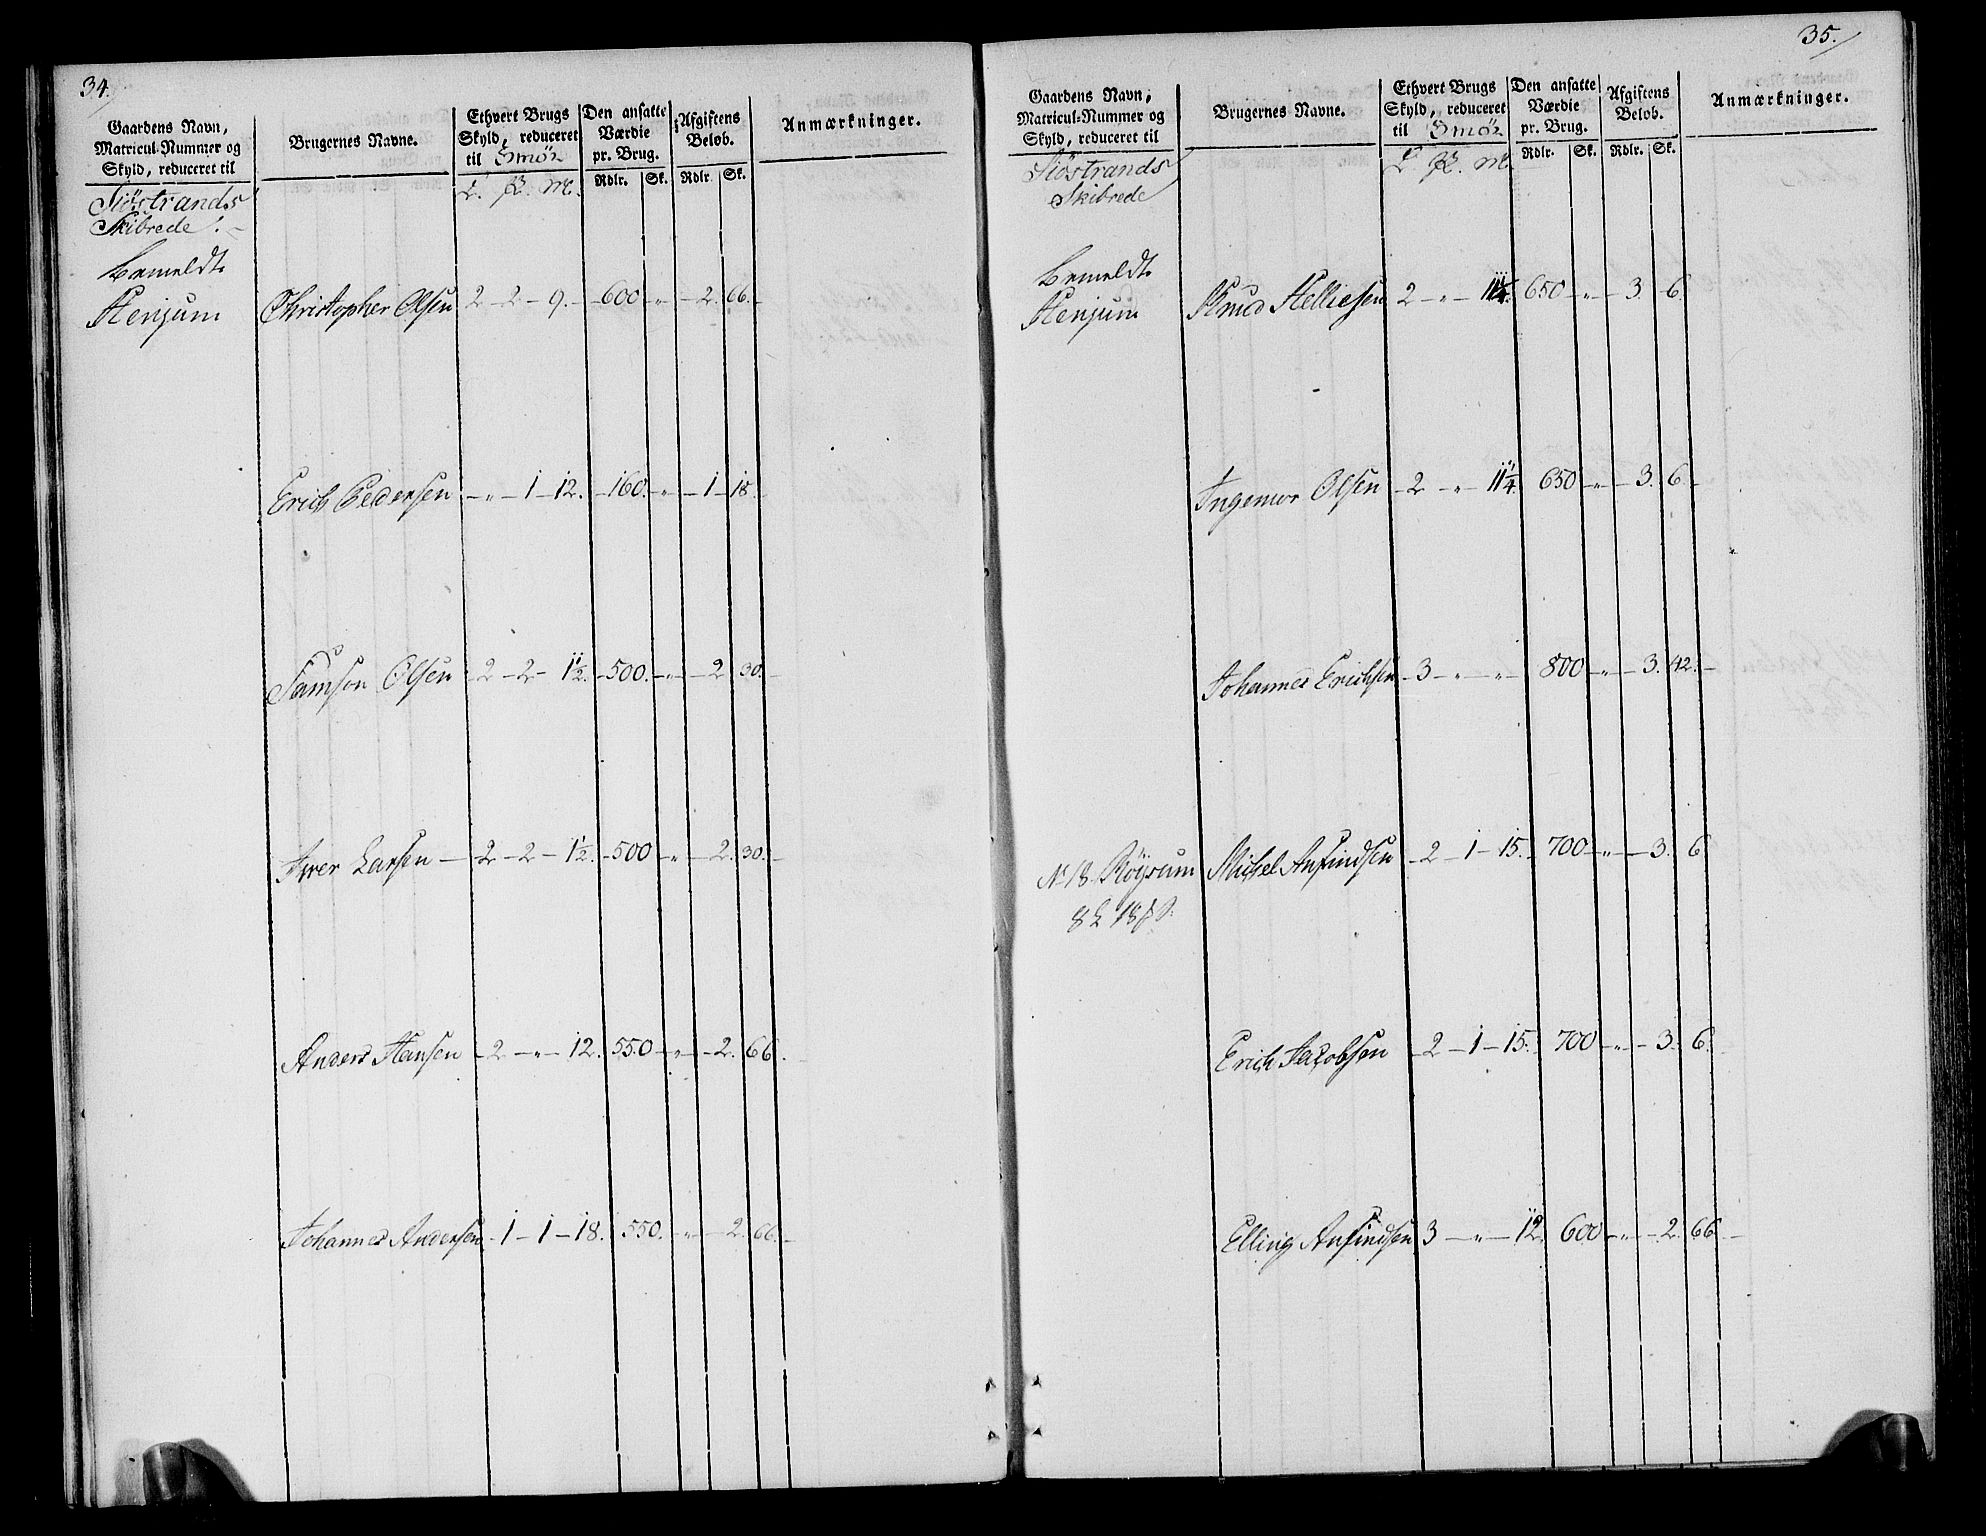 34.
Gaardens Navn, Matricul-Nummer og Skyld, reduceret til
Brugernes Navne.
Ethvert Brugs Skyld, reduceret til Smör
Den ansatte Værdie pr. Brug.
Afgiftens Belöb.
Anmærkninger.
Rdlr. Sk. Rdlr. Sk.
Siöstrands
Skibrede
bemeldte
Henjum Christopher Olsen 2 - 2 - 9. - 600 - " - 2. 66.
Erich Pedersen - " - 1 - 12. - 160. - " - 1 - 18.
Samson Olsen - 2 - 2 - 1½. - 500. - " - 2 30.
Iver Larsen - 2 - 2 - 1½. - 500 - " - 2. 30.
Anders Hansen - 2 - " - 12. 550 - " - 2. 66.
Johannes Andersen - 1 - 1 - 18. 550. - " - 2. 66.
35.
Gaardens Navn, Matricul-Nummer og Skyld, reduceret til
Brugernes Navne.
Ethvert Brugs Skyld, reduceret til Smör
Den ansatte Værdie pr. Brug.
Afgiftens Belöb.
Anmærkninger.
Rdlr. Sk. Rdlr. Sk.
Siöstrands
Skibrede
bemeldte
Henjum Knud Helliesen 2 - " - 11¼. 650 - " - 3. 6.
Ingemor Olsen - 2 - " - 11¼. 650 - " - 3. 6.
Johannes Erichsen - 3 - " - " - 800 - " - 3. 42.
N 18 Röysum Michel Anfindsen - 2 - 1 - 15. 700 - " - 3. 6
Erich Jacobsen - 2 - 1 - 15. 700 - " - 3. 6.
Elling Anfindsen 3 - " - 12. 600 - " - 2. 66